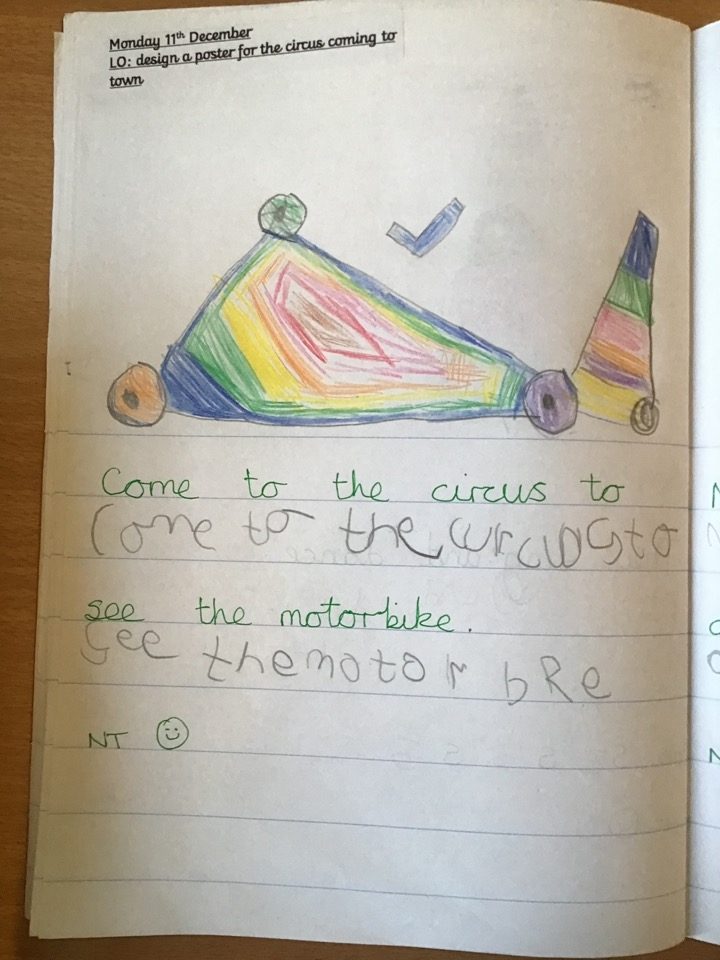 Monday 11th December
LO: design a poster for the circus coming to
town
Come to the circus to
Come to the circus to
see the motorbike.
See the motor bRe
NT